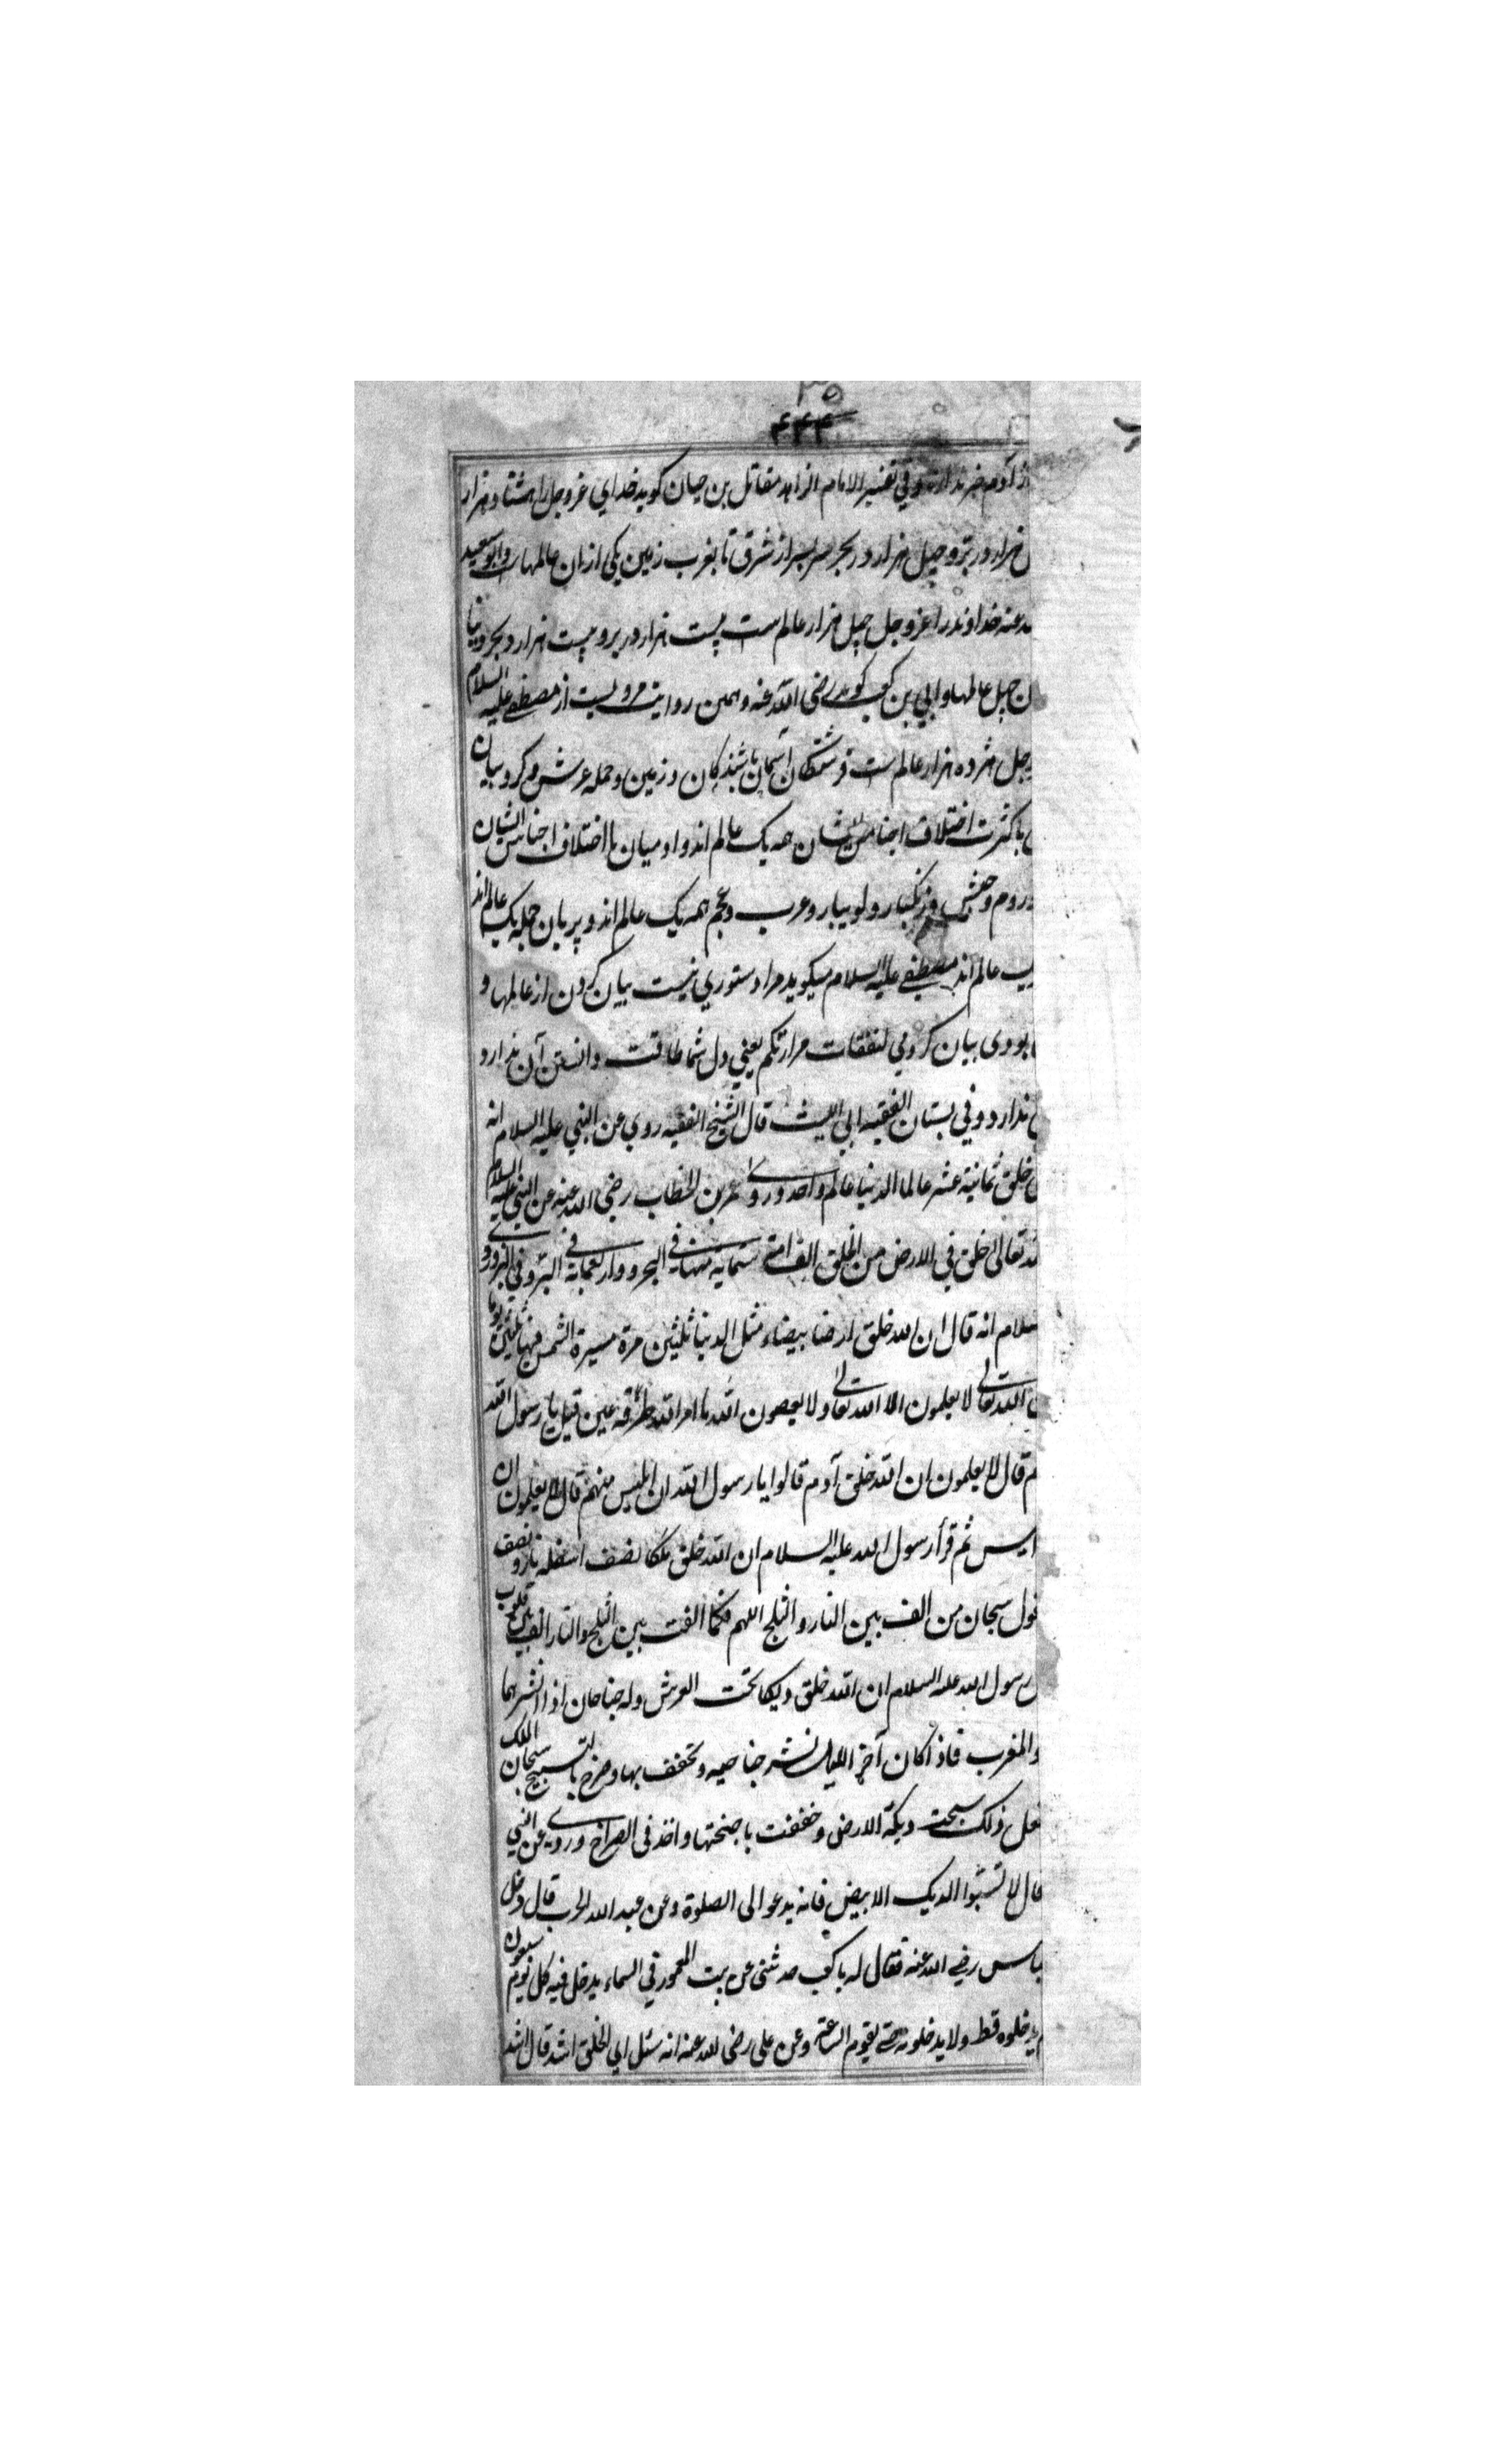 ۳۵
۴۴۴
از آدم خبر ندارند و في تفسير الامام الزاهد مقاتل بن حيان كويد خداي عز و جل را هشتاد هزار
هزار در بر و چهل هزار در بحر سراسر از شرق تا بغرب زمين يكي از ان عالمهاست و ابو سعيد
عنه خداوند را عز و جل چهل هزار عالم است بيست هزار در بر و بيست هزار در بحر و دنيا
چهل عالمها و ابي بن كعب كويد رضي الله عنه و همين روايت مرويست از مصطفى عليه السلام
و جل هژده هزار عالم است فرشتكان آسمان باشندكان و زمين و حمله عرش و كروبيان
با كثرت اختلاف اجناس ايشان همه يك عالم اند و ادميان با اختلاف اجناس ايشان
و روم و حبش و زنكبار و لوبيار و عرب و عجم همه يك عالم اند و پريان جمله يك عالم اند
عالم اند مصطفى عليه السلام ميكويد مرا دستوري نيست بيان كردن از عالمها و
بودي بيان كردمي لتفقات مرارتكم يعني دل شما طاقت دانستن آن ندارد
ندارد و في بستان الفقيه ابي الليث قال الشيخ الفقيه روي عن النبي عليه السلام انه
خلق ثمانية عشر عالما الدنيا عالم واحد وروى عمر بن الخطاب رضي الله عنه عن النبي عليه السلام
تعالى خلق في الارض من الخلق الف امة ستماية منها في البحر و واربعماية في البر و في
سلام انه قال ان الله خلق ارضا بيضاء مثل الدنيا ثلثين مرة مسيرة الشمس فيها ثلثين يوما
الله تعالى لا يعلمون الا الله تعالى ولا يعصون الله ما امر الله طرفة عين قيل يا رسول الله
قال لا يعلمون ان الله خلق آدم قالوا يا رسول الله ان ابليس منهم قال لا يعلمون ان
ثم قرأ رسول الله عليه السلام ان الله خلق ملكا نصف اسفله نار و نصف
سبحان من الف بين النار و الثلج اللهم فكما الفت بين الثلج و النار الف بين قلوب
رسول الله عليه السلام ان الله خلق ديكا تحت العرش وله جناحان اذا انشرهما
والمغرب فاذا كان آخر الليل نشر جناحيه و تخفف بها و صرخ بالتسبيح سبحان الملك
فعل ذلك سبحت ديكة الارض و خففت باجنحتها و اخذ في الصراخ وروي عن النبي
قال لا تسبوا الديك الابيض فانه يدعو الى الصلوة و عن عبد الله الحرب قال دخل
رضي الله عنه فقال له يا كعب حدثني عن بيت المعمور في السماء يدخل فيه كل يوم سبعون
يدخلوه قط ولا يدخلونه حتى يقوم الساعة و عن علي رضي الله عنه انه سئل اي الخلق اشد قال اشد